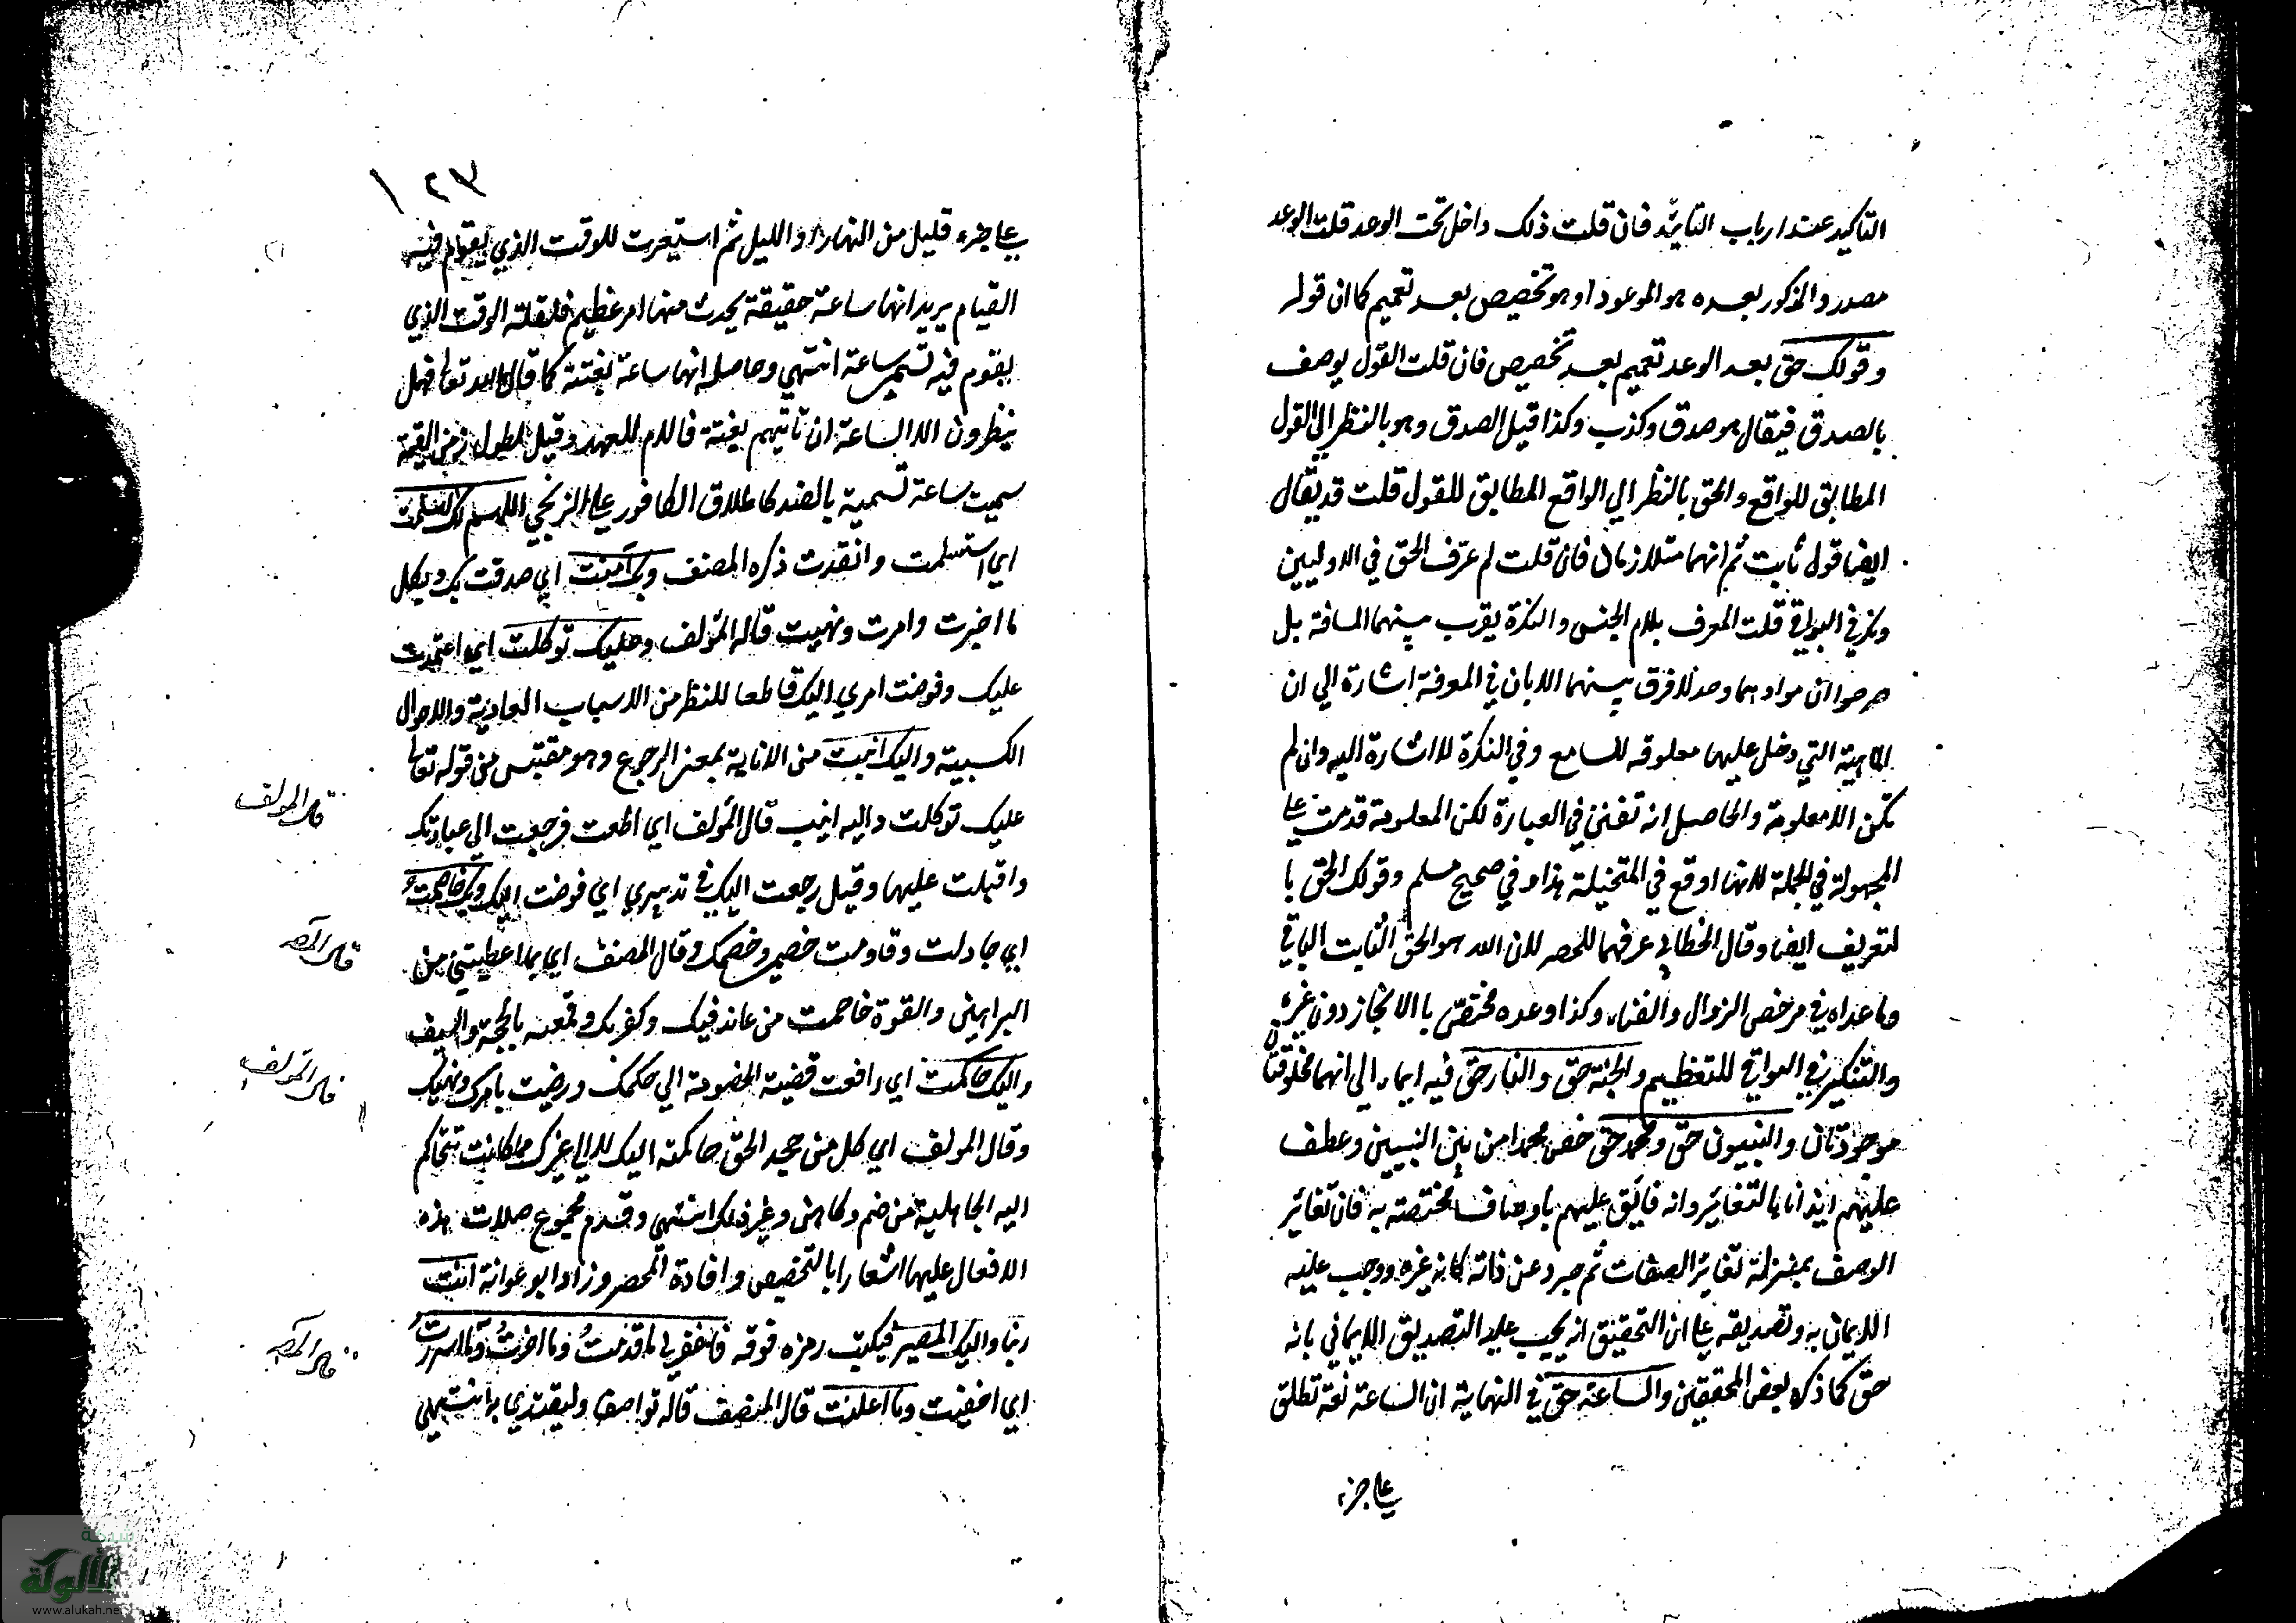 التاكيد عند ارباب التاييد فان قلت ذلك داخل تحت الوعد قلت الوعد
مصدر والمذكور بعده هو الموعود او هو تخصيص بعد تعميم كما ان قوله
وقولك حق بعد الوعد تعميم بعد تخصيص فان قلت القول يوصف
بالصدق فيقال هو صدق وكذب وكذا قيل الصدق وهو بالنظر الي القول
المطابق للواقع والحق بالنظر الي الواقع المطابق للقول قلت قد يقال
ايضا قول ثابت ثم انهما متلازمان فان قلت لم عرّف الحق في الاوليين
ونكر في البواقي قلت المعرف بلام الجنس والنكرة يقرب بينهما المسافة بل
صرحوا ان مواد هما وحد لا فرق بينهما الا بان في المعرفة اشارة الي ان
الماهية التي دخل عليها معلومه للسامع وفي النكرة لا اشارة اليه وان لم
تكن الا معلومة والحاصل انه تفنن في العبارة لكن المعلومة قدمت علي
المجهولة في الجملة لانها اوقع في المتخيلة هذا و في صحيح مسلم وقولك الحق با
لتعريف ايضا وقال الخطابي عرفهما للحصر لان الله هو الحق الثابت الباقي
وما عداه في معرض الزوال والفناء وكذا وعده مختصّ با الانجاز دون غيره
والتنكير في البواقي للتعظيم والجنة حق والنار حق فيه ايماء الي انهما مخلوقتان
موجودتان والنبيون حق ومحمد حق خص محمدا من بين النبيين وعطف
عليهم ايذانا بالتغائير وانه فايق عليهم باوصاف مختصته به فان تغائير
الوصف بمنزلة تغائير الصفات ثم جرد عن ذاته كانه غيره ووجب عليه
الايمان به وتصديقه علي ان التحقيق انه يجب عليه التصديق الايماني بانه
حق كما ذكره بعض المحققين والساعة حق في النهاية ان الساعة لغة تطلق
علي جزء
١٢٣
علي جزء قليل من النهار او الليل ثم استعيرت للوقت الذي يقوم فيه
القيام يريد انها ساعة حقيقة يحدث منها امر عظيم فلقلة الوقت الذي
يقوم فيه تسمي ساعة انتهي وحاصله انها ساعة بغتة كما قال الله تعالي فهل
ينظرون الا الساعة ان تاتيهم بغتة فاللام للعهد وقيل لطول زمن القيمة
سميت ساعة تسمية بالضد كاطلاق الكافور علي الزنجي اللهم لك اسلمت
اي استسلمت وانقدت ذكره المصنف وبك آمنت اي صدقت بك وبكل
ما اخبرت وامرت ونهيت قاله المؤلف وعليك توكلت اي اعتمدت
عليك وفوضت امري اليك قاطعا للنظر من الاسباب العادية والاحوال
الكسبية واليك انبت من الانابة بمعنى الرجوع وهو مقتبس من قوله تعالي
عليك توكلت واليه انيب قال المؤلف اي اطعت فرجعت الي عبادتك
واقبلت عليها وقيل رجعت اليك في تدبيري اي فوضت اليك وبك خاصمت
اي جادلت وقاومت خصمي وخصمك وقال المصنف اي بما اعطيتني من
البراهين والقوة خاصمت من عاند فيك وكفر بك وقمعه بالحجة والسيف
واليك حاكمت اي رافعت قضية الخصومة الي حكمك ورضيت بامرك ونهيك
وقال المولف اي كل من جحد الحق حاكمته اليك لا الي غيرك مما كانت تتحاكم
اليه الجاهلية من ضم وكاهن وغير ذلك انتهي وقدم مجموع صلات هذه
الافعال عليها اشعارا بالتخصيص وافادة الحصر وزاد ابو عوانة انت
ربنا واليك المصير فيكتب رمزه فوقه فاغفر لي ما قدمتُ وما اخرتُ وما اسررتُ
اي اخفيت وما اعلنت قال المنصف قاله تواضعا وليقتدي به امته
قال المولف
قال المصـ
قال المؤلف
قال المصـ
شبكة
الألوكة
www.alukah.net